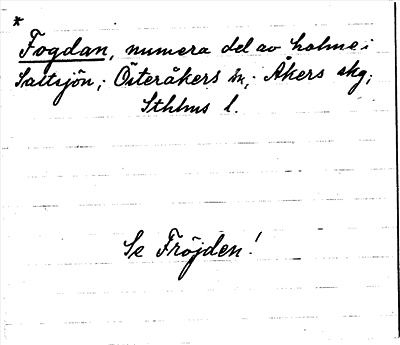 *
Fogdan, numera del av holme i
Saltsjön, Österåkers sn, Åkers skg,
Sthlms l.
Se Fröjden!